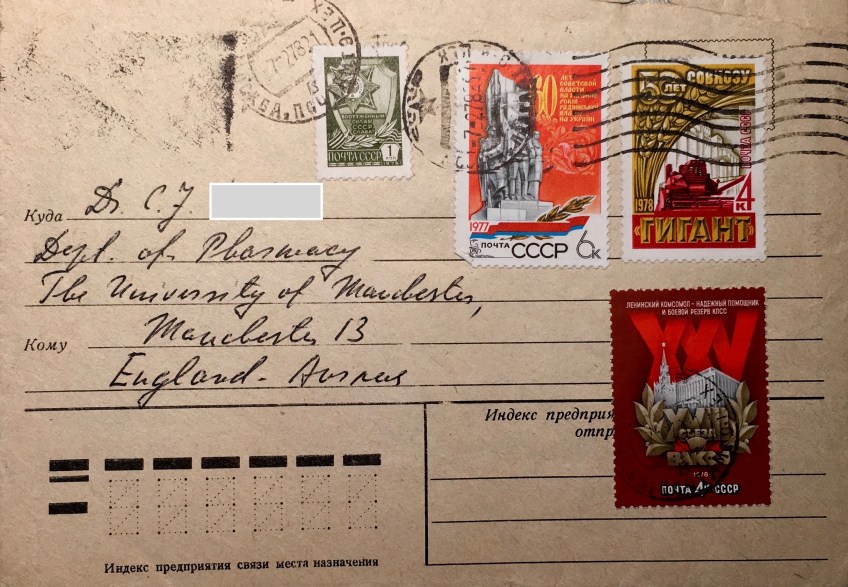 ВООРУЖЕННЫЕ
СИЛЫ
СССР
ПОЧТА СССР 1
60 ЛЕТ
СОВЕТСКОЙ
ВЛАСТИ
НА УКРАИНЕ
РОКІВ
РАДЯНСЬКОЇ
ВЛАДИ
НА УКРАЇНІ
1977
ПОЧТА СССР 6К
50 ЛЕТ СОВХОЗУ
ПОЧТА СССР
1978
4К
«ГИГАНТ»
Куда Dr. C. J.
Dept. of Pharmacy
The University of Manchester,
Кому Manchester 13
England - Англия
ЛЕНИНСКИЙ КОМСОМОЛ - НАДЕЖНЫЙ ПОМОЩНИК
И БОЕВОЙ РЕЗЕРВ КПСС
XXV
XVIII
СЪЕЗД
ВЛКСМ
1978
ПОЧТА 4К СССР
Индекс предприя
отпр
Индекс предприятия связи места назначения